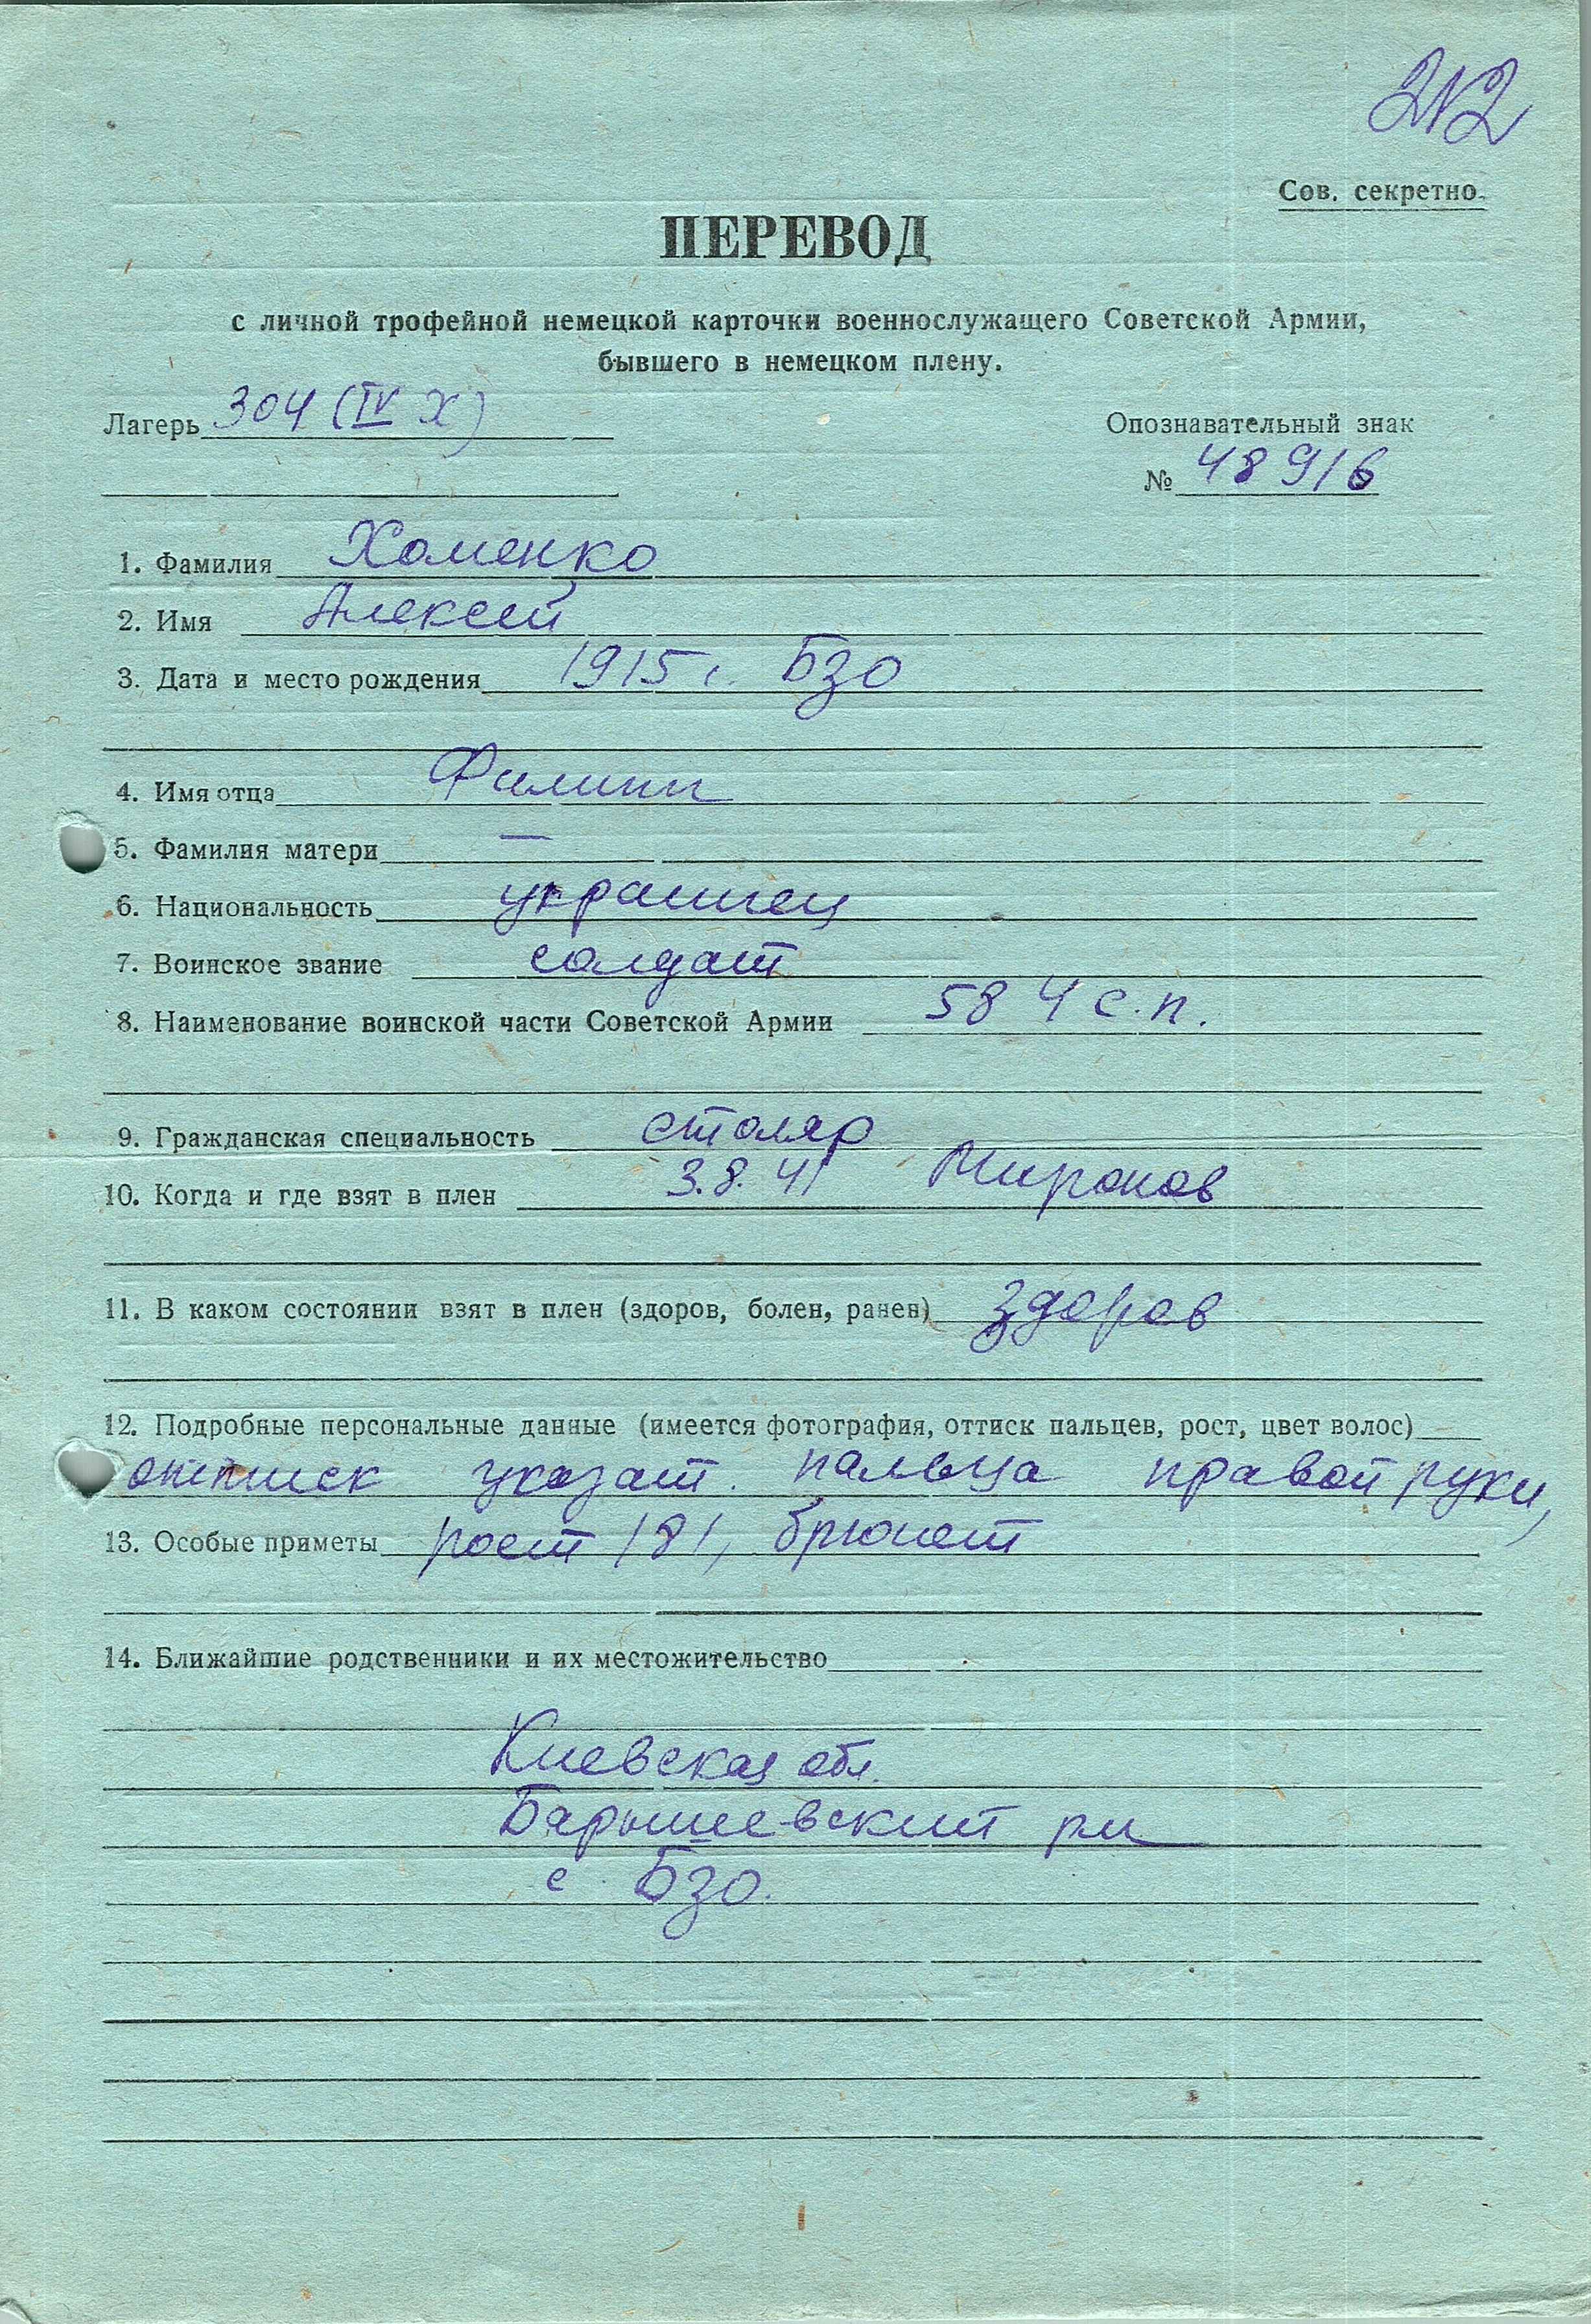 212
Сов. секретно.
ПЕРЕВОД
с личной трофейной немецкой карточки военнослужащего Советской Армии,
бывшего в немецком плену.
Лагерь 304 (IV X)
Опознавательный знак
№ 48916
1. Фамилия Хоменко
2. Имя Алексей
3. Дата и место рождения 1915 г. Бзо
4. Имя отца Филипп
5. Фамилия матери —
6. Национальность украинец
7. Воинское звание солдат
8. Наименование воинской части Советской Армии 584 с.п.
9. Гражданская специальность столяр
10. Когда и где взят в плен 3.8.41 Миронов
11. В каком состоянии взят в плен (здоров, болен, ранен) здоров
12. Подробные персональные данные (имеется фотография, оттиск пальцев, рост, цвет волос)
оттиск указат. пальца правой руки,
13. Особые приметы рост 181, брюнет
14. Ближайшие родственники и их местожительство
Киевская обл.
Барышевский рн
с. Бзо.